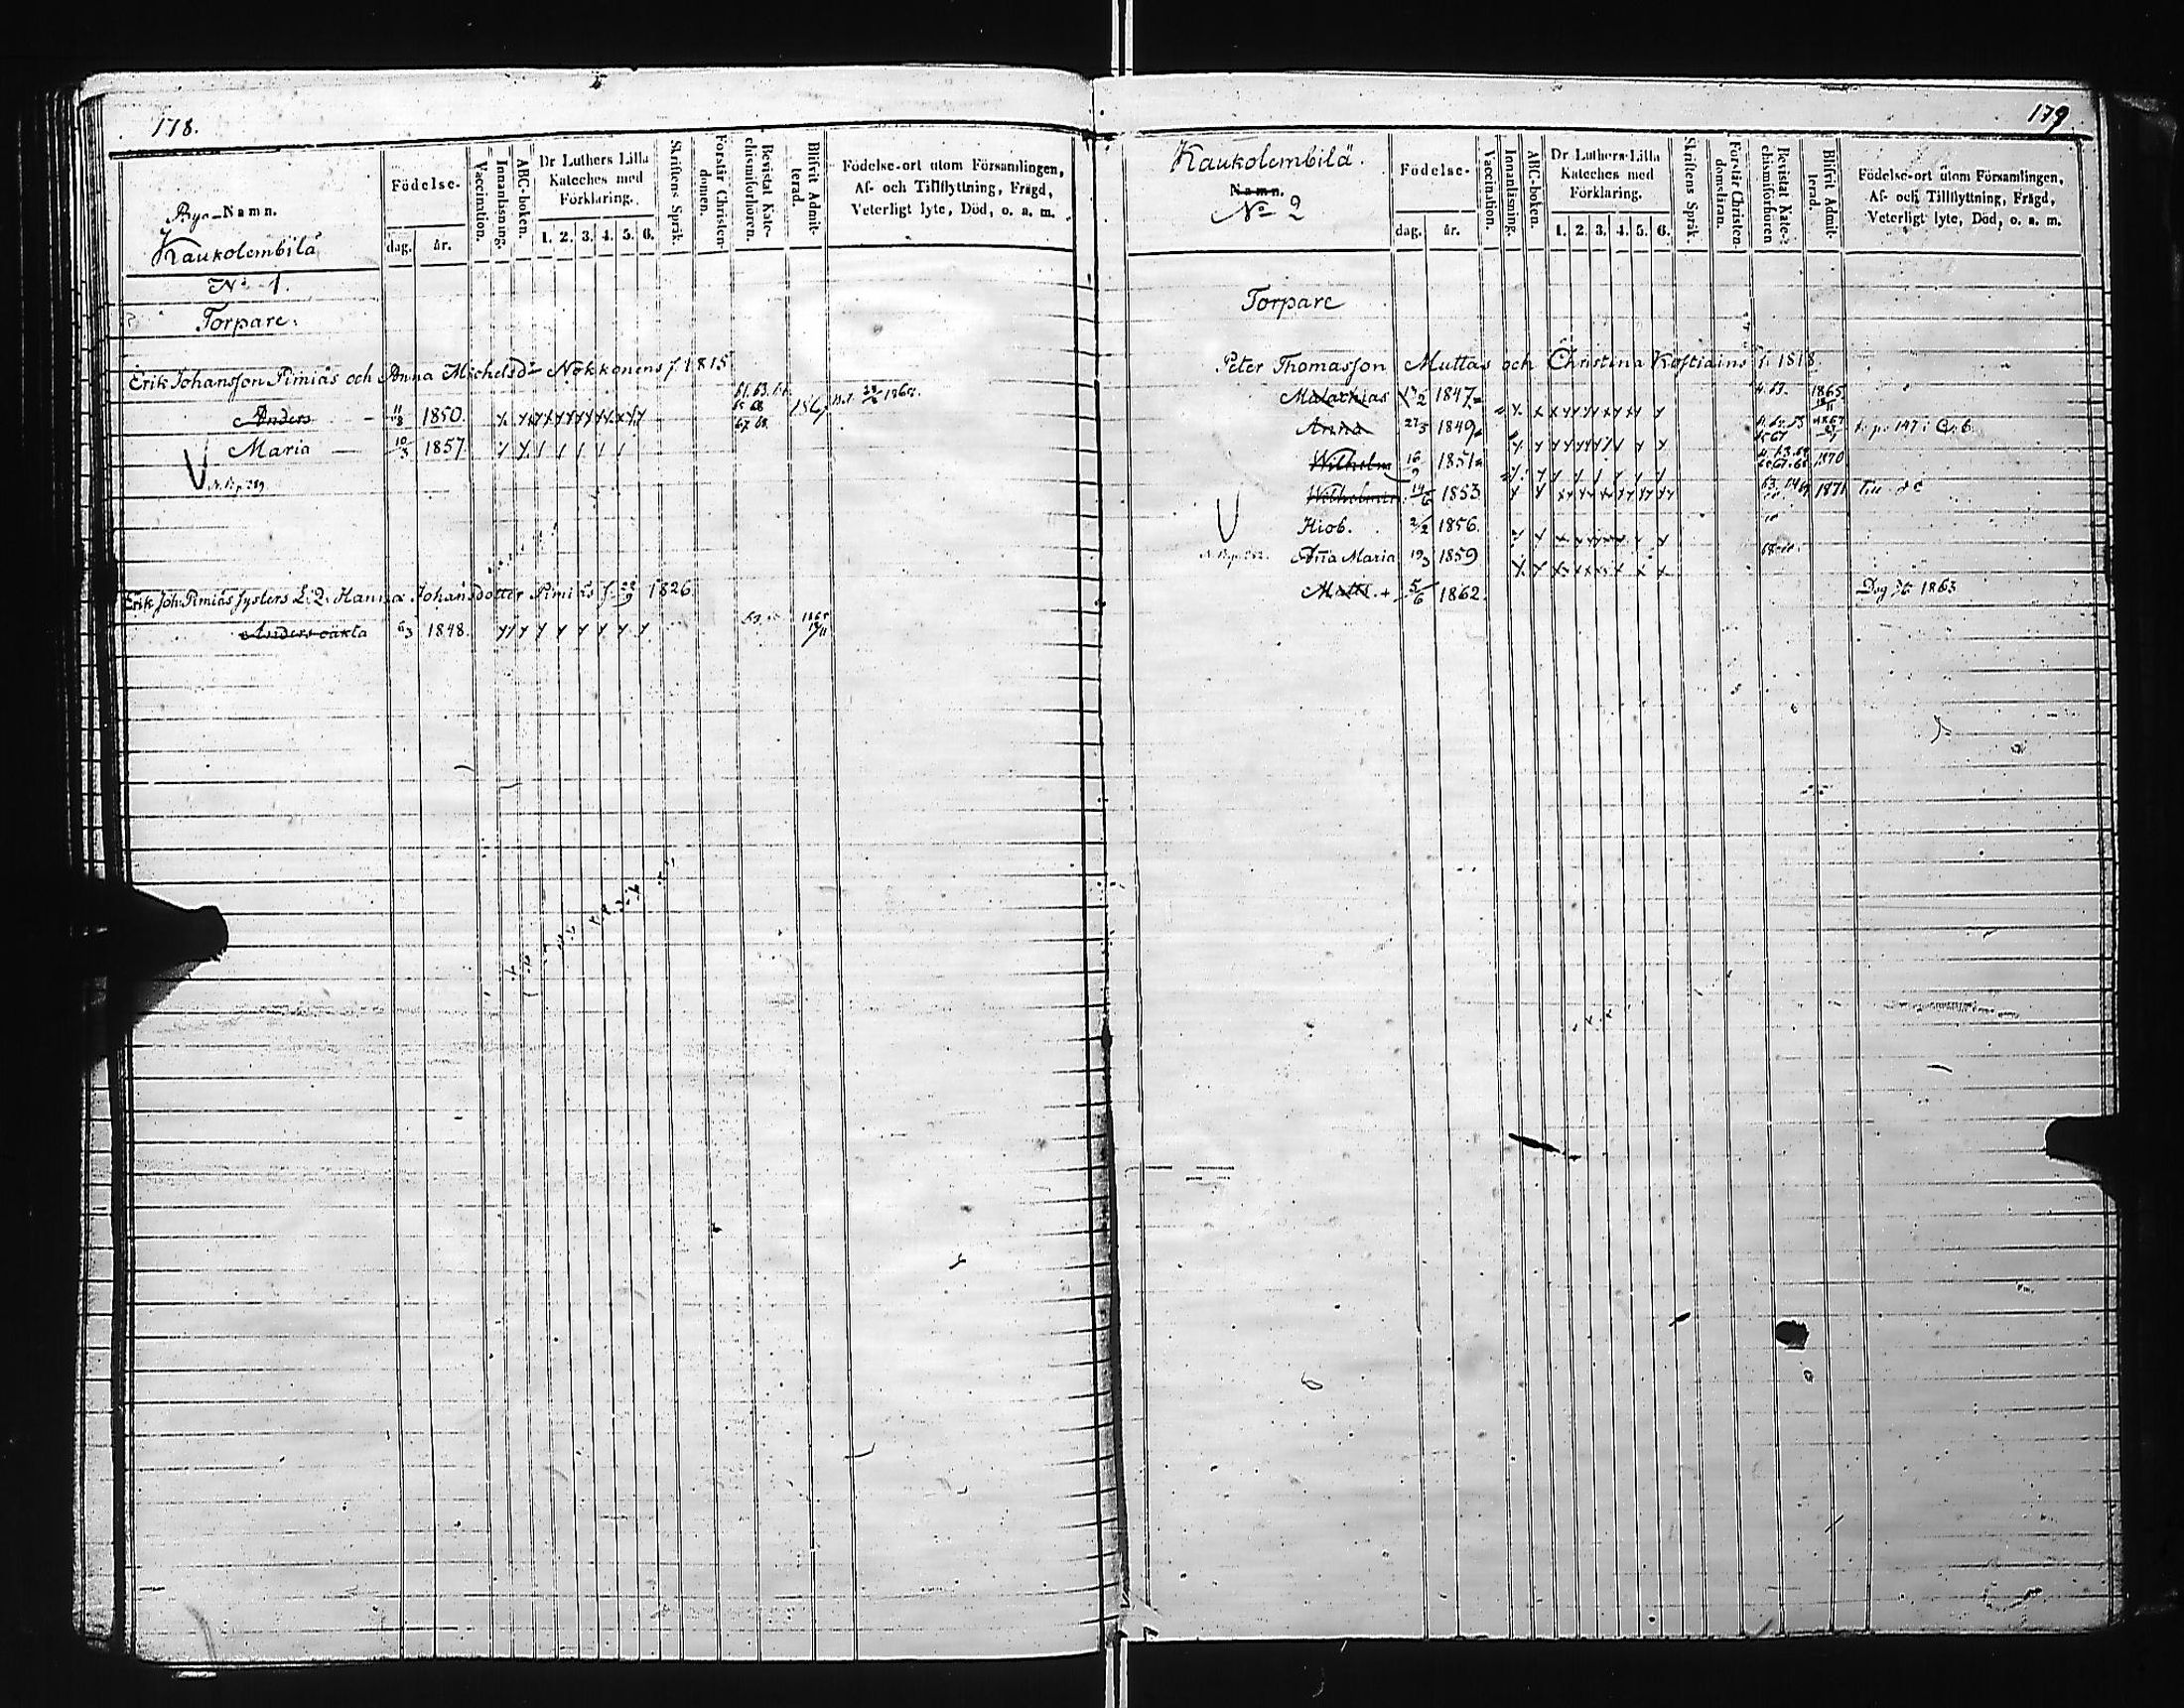 178.
Bya-Namn.
Kaukolembilä
Födelse-
dag. år.
Vaccination.
Innanläsning.
ABC-boken.
Dr Luthers Lilla
Kateches med
Förklaring.
1. 2. 3. 4. 5. 6.
Skriftens Språk.
Förstår Christen-
domen.
Bevistat Kate-
chismiförhören.
Blifvit Admit-
terad.
Födelse-ort utom Församlingen,
Af- och Tillflyttning, Frägd,
Veterligt lyte, Död, o. a. m.
No 1.
Torpare.
Erik Johansson Pimiäs och Anna Michelsdr Nokkonens f. 1815
Anders 11/8 1850. 1867
Maria 10/3 1857
Erik Joh. Pimiäs systers L. D. Hanna Johansdotter Pimiäs f. 1826
Anders oäkta 6/3 1848. 1865
179
Kaukolembilä.
Namn.
No 2
Födelse-
dag. år.
Vaccination.
Innanläsning.
ABC-boken.
Dr Luthers Lilla
Kateches med
Förklaring.
1. 2. 3. 4. 5. 6.
Skriftens Språk.
Förstår Christen-
domsläran.
Bevistat Kate-
chismiförhören
Blifvit Admit-
terad.
Födelse-ort utom Församlingen,
Af- och Tillflyttning, Frägd,
Veterligt lyte, Död, o. a. m.
Torpare
Peter Thomasson Muttas och Christina Kostiains f. 1818.
Malachias 1847 1865
Anna 27/3 1849 1867
Wilhelm 16/9 1851 1870
14/6 1853 1871
Hiob. 2/2 1856.
Anna Maria 19/3 1859
Matts. + 5/6 1862. 1863